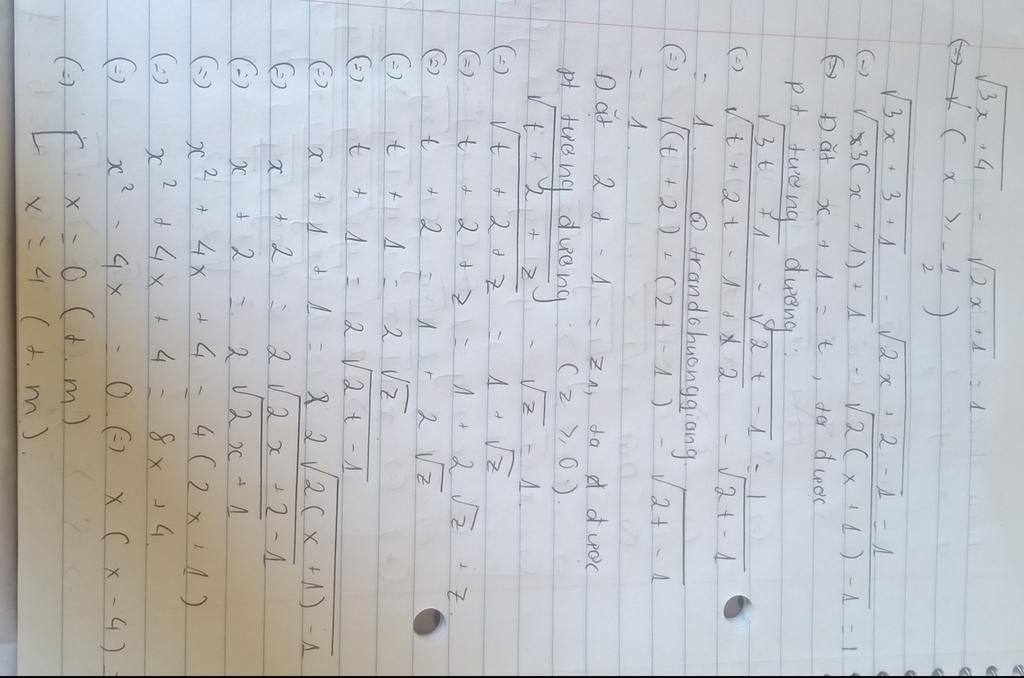 √(3x + 4) - √(2x + 1) = 1
(x ≥ -1/2)
√(3x + 3 + 1) - √(2x + 2 - 1) = 1
(=) √(3(x + 1) + 1) - √(2(x + 1) - 1) = 1
(=) Đặt x + 1 = t, ta được
pt tương đương:
√(3t + 1) - √(2t - 1) = 1
(=) √(t + 2t - 1 + 2) - √(2t - 1)
= 1. © trandohuonggiang
(=) √((t + 2) + (2t - 1)) - √(2t - 1)
= 1.
Đặt 2t - 1 = z, ta đ được
pt tương đương: (z ≥ 0)
√(t + 2 + z) - √z = 1.
(=) √(t + 2 + z) = 1 + √z
(=) t + 2 + z = 1 + 2√z + z
(=) t + 2 = 1 + 2√z
(=) t + 1 = 2√z
(=) t + 1 = 2√(2t - 1)
(=) x + 1 + 1 = 2√(2(x + 1) - 1)
(=) x + 2 = 2√(2x + 2 - 1)
(=) x + 2 = 2√(2x + 1)
(=) x² + 4x + 4 = 4(2x + 1)
(=) x² + 4x + 4 = 8x + 4
(=) x² - 4x = 0 (=) x(x - 4) =
(=) [ x = 0 (t.m)
x = 4 (t.m).